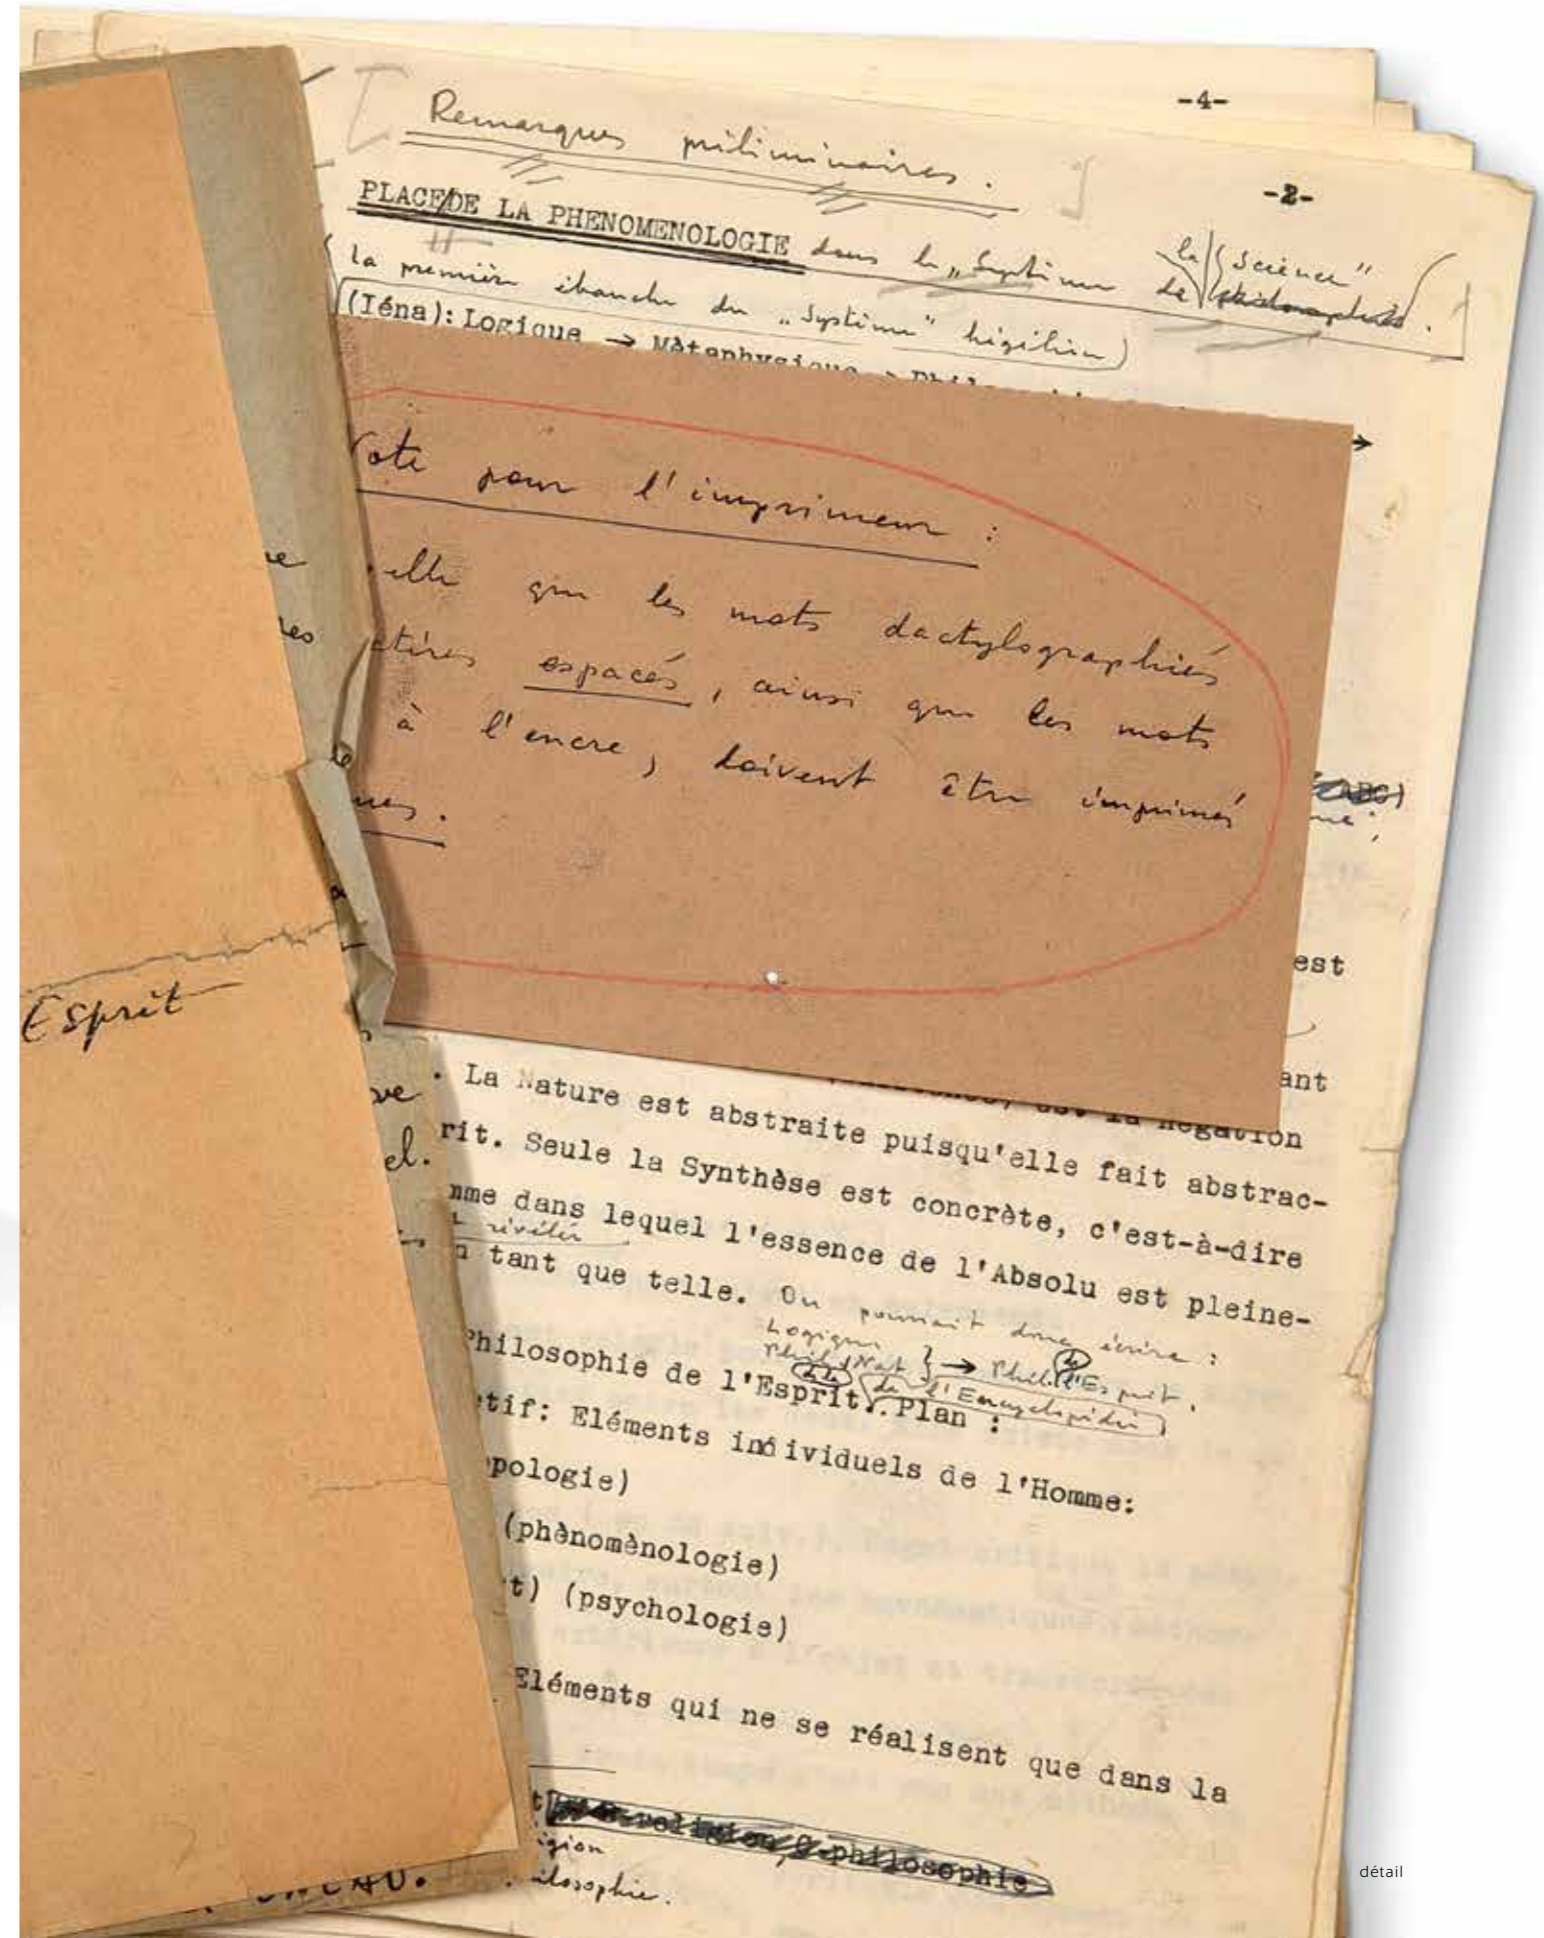 -4-
Remarques préliminaires.
-2-
PLACE/DE LA PHENOMENOLOGIE dans le „Système de la Science"
la première ébauche du „Système" hégélien)
(Iéna): Logique → Mètaphysique →
→
Note pour l'imprimeur :
que les mots dactylographiés
espacés, ainsi que les mots
à l'encre, doivent être imprimés
ues.
est
Esprit
ant
est la négation
. La Nature est abstraite puisqu'elle fait abstrac-
rit. Seule la Synthèse est concrète, c'est-à-dire
mme dans lequel l'essence de l'Absolu est pleine-
révélée
n tant que telle. On pourrait donc écrire :
Logique
Philo Nat } → Philo de l'Esprit.
Philosophie de l'Esprit. de l'Encyclopédie Plan :
tif: Eléments individuels de l'Homme:
pologie)
(phènomènologie)
t) (psychologie)
Eléments qui ne se réalisent que dans la
religion, philosophie
igion
ilosophie.
détail